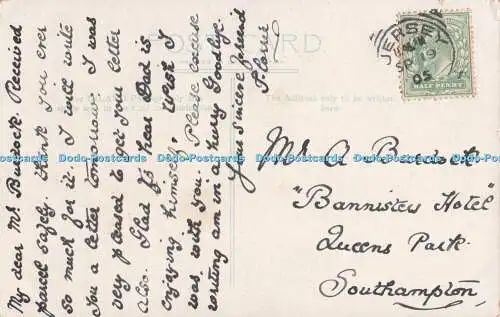 My dear Mr Burdock. Received
parcel safely. Thank you ever
so much for it. I will write
you a letter tomorrow. I was
very pleased to get your letter
also. Glad to hear Dad is
enjoying himself. Wish I
was with you. Please excuse
writing am in a hurry Goodbye.
Your sincere friend
POST CARD
The Address only to be written
here
JERSEY
05
HALF PENNY
Mr A Burdock
"Bannisters Hotel"
Queens Park.
Southampton
Dodo-Postcards Dodo-Postcards Dodo-Postcards Dodo-Postcards
Dodo-Postcards Dodo-Postcards Dodo-Postcards Dodo-Postcards